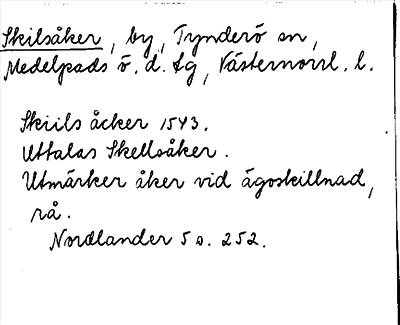 Skilsåker, by, Tynderö sn,
Medelpads ö. d. tg, Västernorrl. l.
Skiils åcker 1543.
Uttalas Skellsåker.
Utmärker åker vid ägoskillnad,
rå.
Nordlander 5 s. 252.